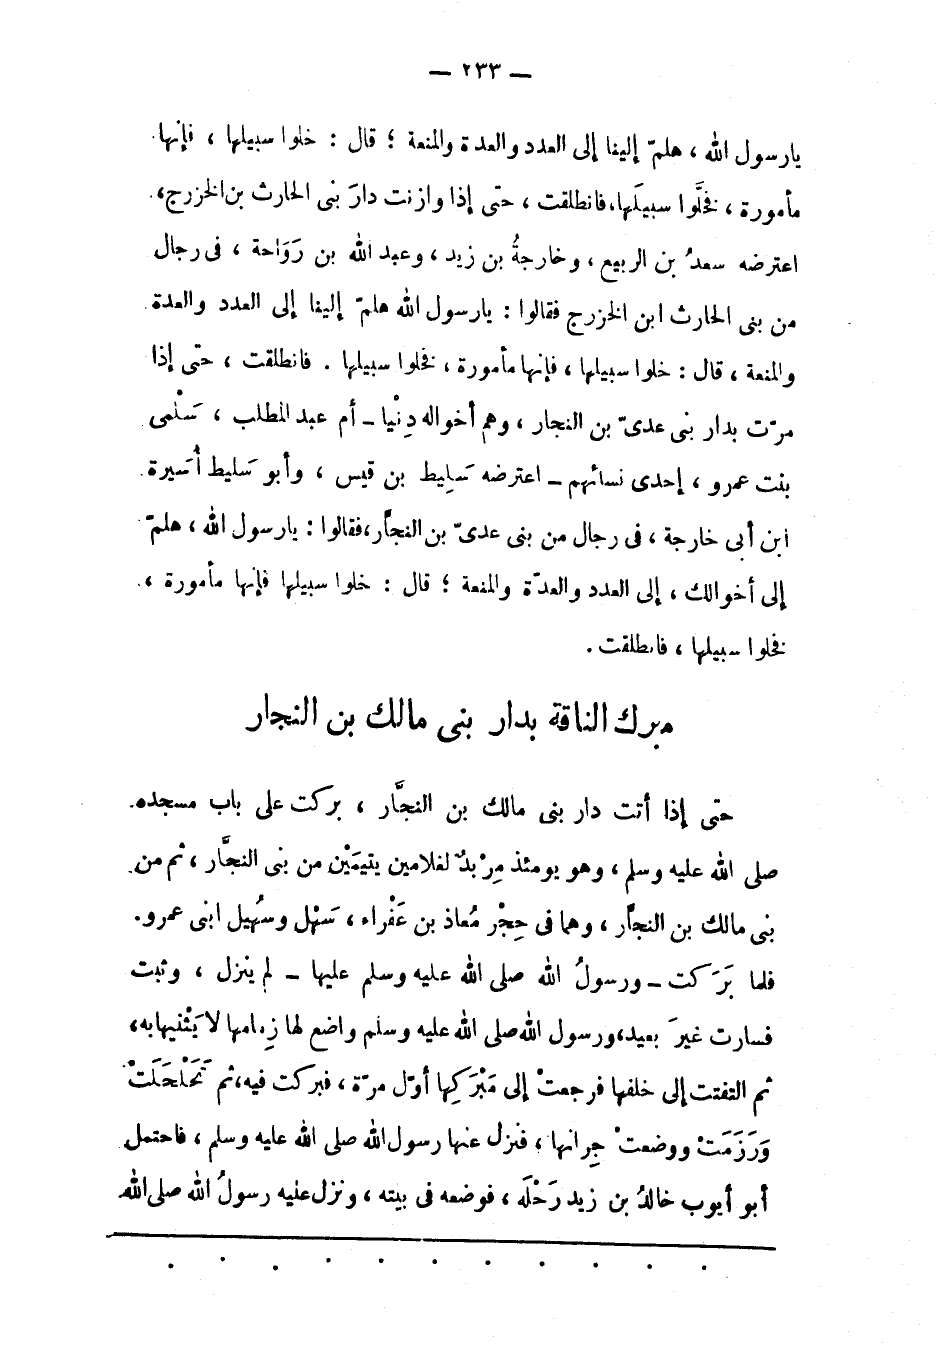 — ٢٣٣ —
يارسول الله ، هلمّ إلينا إلى العدد والعدة والمنعة ؛ قال : خلوا سبيلها ، فإنها
مأمورة ، فخلَّوا سبيلَها،فانطلقت ، حتى إذا وازنت دارَ بنى الحارث بن الخزرج،
اعترضه سعدُ بن الربيع ، وخارجةُ بن زيد ، وعبد الله بن رَوَاحة ، فى رجال
من بنى الحارث ابن الخزرج فقالوا : يارسول الله هلمّ إلينا إلى العدد والعدة
والمنعة ، قال : خلوا سبيلها ، فإنها مأمورة ، فخلوا سبيلها . فانطلقت ، حتى إذا
مرّت بدار بنى عدىّ بن النجار ، وهم أخواله دِنْيا ــ أم عبد المطلب ، سَلْمى
بنت عمرو ، إحدى نسائهم ــ اعترضه سَلِيط بن قيس ، وأبو سَليط أُسَيرة
ابن أبى خارجة ، فى رجال من بنى عدىّ بن النجَّار،فقالوا : يارسول الله ، هلمّ
إلى أخوالك ، إلى العدد والعدّة والمنعة ؛ قال : خلوا سبيلها فإنها مأمورة ،
فخلوا سبيلها ، فانطلقت .
مبرك الناقة بدار بنى مالك بن النجار
حتى إذا أتت دار بنى مالك بن النجَّار ، بركت على باب مسجده
صلى الله عليه وسلم ، وهو يومئذ مِرْبدٌ لغلامين يتيمَيْن من بنى النجَّار ، ثم من
بنى مالك بن النجَّار ، وهما فى حِجْر مُعاذ بن عَفْراء ، سَهْل وسُهيل ابنى عمرو.
فلما بَرَكت ــ ورسولُ الله صلى الله عليه وسلم عليها ــ لم ينزل ، وثبت
فسارت غيرَ بعيد،ورسول الله صلى الله عليه وسلم واضع لها زِمامها لا يَثْنيها به،
ثم التفتت إلى خلفها فرجعتْ إلى مَبْرَكِها أوّل مرّة ، فبركت فيه،ثم تَحَلْحَلَتْ
وَرَزَمَتْ ووضعتْ جِرانها ، فنزل عنها رسول الله صلى الله عليه وسلم ، فاحتمل
أبو أيوب خالدُ بن زيد رَحْلَه ، فوضعه فى بيته ، ونزل عليه رسولُ الله صلى الله